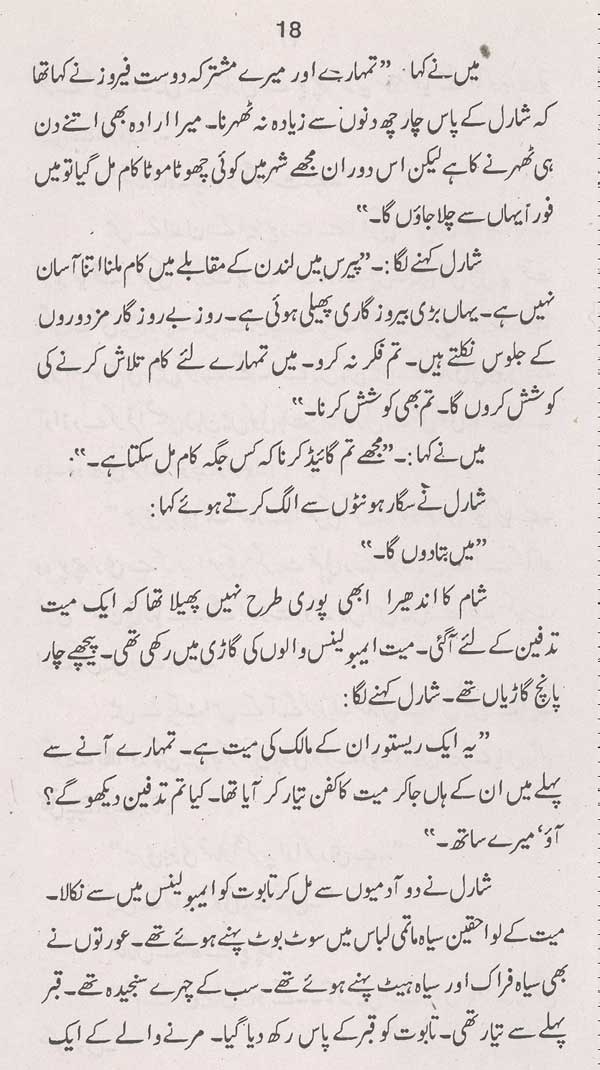 18
میں نے کہا۔ ”تمہارے اور میرے مشترکہ دوست فیروز نے کہا تھا
کہ شارل کے پاس چار چھ دنوں سے زیادہ نہ ٹھہرنا۔ میرا ارادہ بھی اتنے دن
ہی ٹھہرنے کا ہے لیکن اس دوران مجھے شہر میں کوئی چھوٹا موٹا کام مل گیا تو میں
فوراً یہاں سے چلا جاؤں گا۔“
شارل کہنے لگا:۔ ”پیرس میں لندن کے مقابلے میں کام ملنا اتنا آسان
نہیں ہے۔ یہاں بڑی بیروزگاری پھیلی ہوئی ہے۔ روز بے روزگار مزدوروں
کے جلوس نکلتے ہیں۔ تم فکر نہ کرو۔ میں تمہارے لئے کام تلاش کرنے کی
کوشش کروں گا۔ تم بھی کوشش کرنا۔“
میں نے کہا:۔ ”مجھے تم گائیڈ کرنا کہ کس جگہ کام مل سکتا ہے۔“:
شارل نے سگار ہونٹوں سے الگ کرتے ہوئے کہا:
”میں بتا دوں گا۔“
شام کا اندھیرا ابھی پوری طرح نہیں پھیلا تھا کہ ایک میت
تدفین کے لئے آگئی۔ میت ایمبولینس والوں کی گاڑی میں رکھی تھی۔ پیچھے چار
پانچ گاڑیاں تھے۔ شارل کہنے لگا:
”یہ ایک ریستوران کے مالک کی میت ہے۔ تمہارے آنے سے
پہلے میں ان کے ہاں جا کر میت کا کفن تیار کر آیا تھا۔ کیا تم تدفین دیکھو گے؟
آؤ‘ میرے ساتھ۔“
شارل نے دو آدمیوں سے مل کر تابوت کو ایمبولینس میں سے نکالا۔
میت کے لواحقین سیاہ ماتمی لباس میں سوٹ بوٹ پہنے ہوئے تھے۔ عورتوں نے
بھی سیاہ فراک اور سیاہ ہیٹ پہنے ہوئے تھے۔ سب کے چہرے سنجیدہ تھے۔ قبر
پہلے سے تیار تھی۔ تابوت کو قبر کے پاس رکھ دیا گیا۔ مرنے والے کے ایک